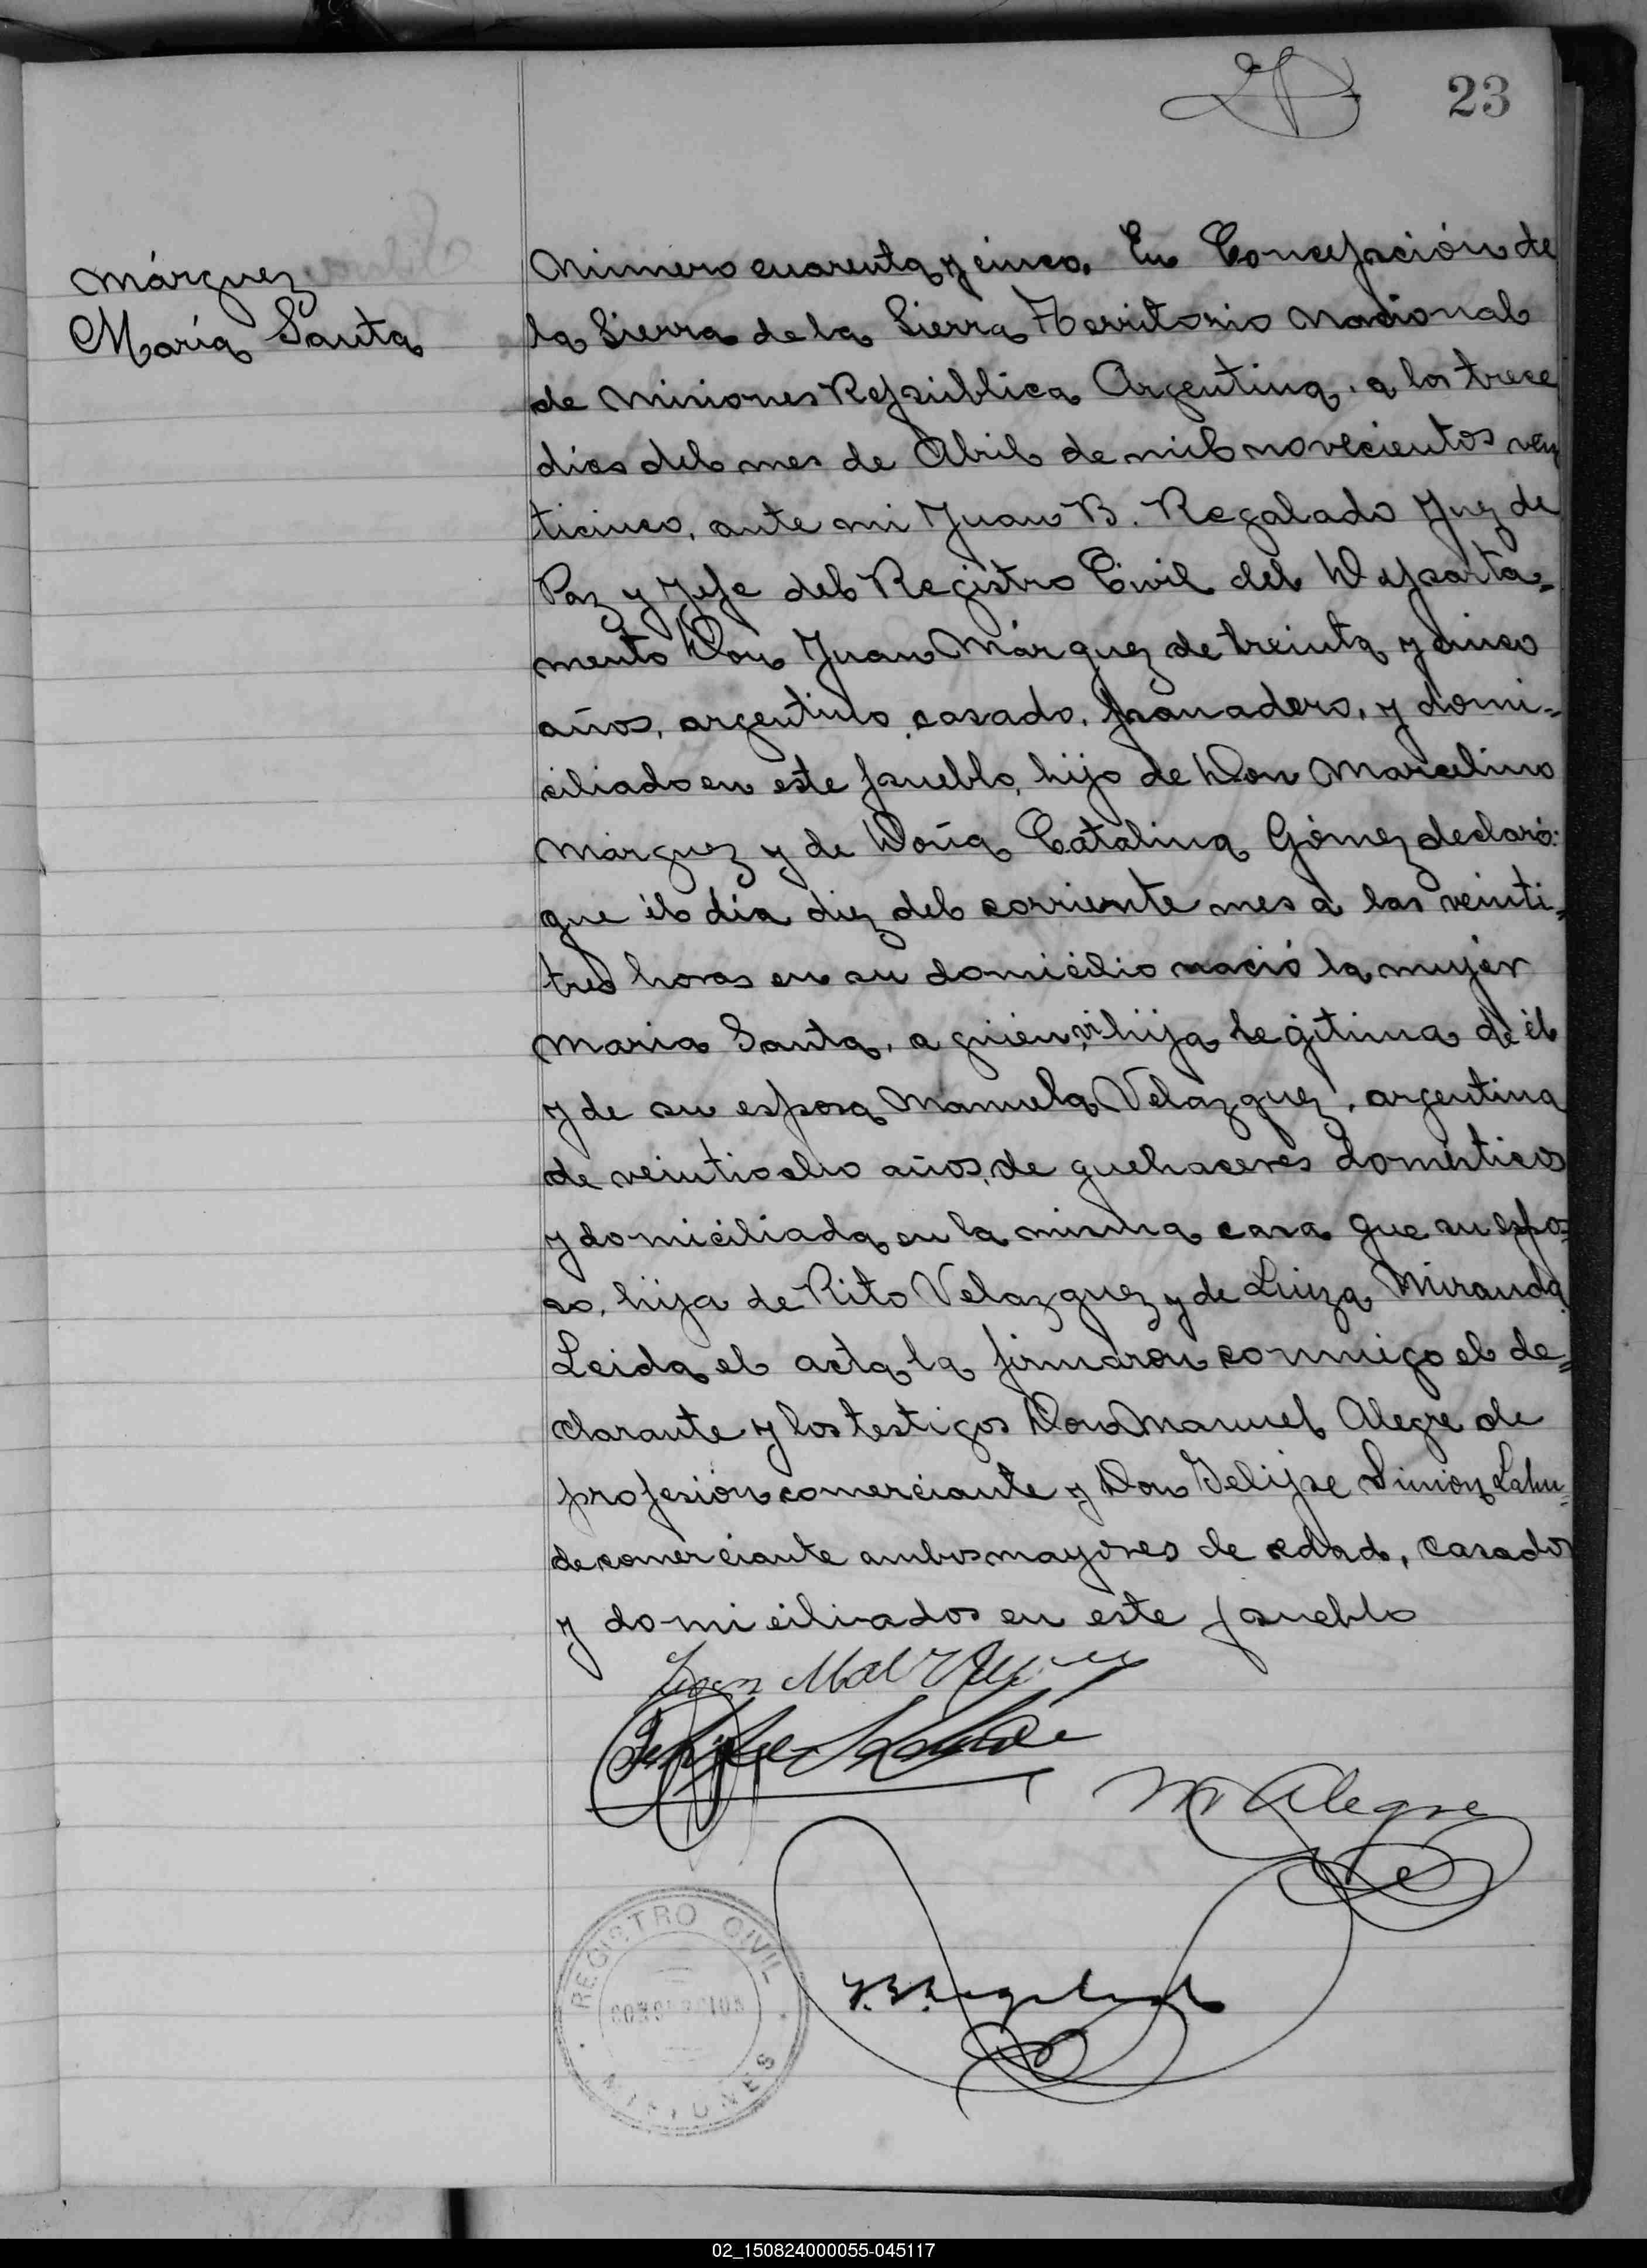 23
Márquez
María Santa
Número cuarenta y cinco. En Concepción de
la Sierra de la Sierra Territorio Nacional
de Misiones República Argentina, a los trece
días del mes de Abril de mil novecientos vein
ticinco, ante mi Juan B. Regalado Juez de
Paz y Jefe del Registro Civil del Departa=
mento Don Juan Márquez de treinta y cinco
años, argentino, casado, panadero, y domi=
ciliado en este pueblo, hijo de Don Marcelino
Márquez y de Doña Catalina Gómez declaró:
que él día diez del corriente mes a las veinti=
tres horas en su domicilio nació la mujér
Maria Santa, a quién ví hija legitima de él
y de su esposa Manuela Velazquez, argentina
de veintiocho años, de quehaceres domésticos
y domiciliada en la misma casa que su espo=
so, hija de Rito Velazquez y de Luiza Miranda
Leida el acta la firmaron conmigo el de=
clarante y los testigos Don Manuel Alegre de
profesión comerciante y Don Felipe Simón Lahu=
de comerciante ambos mayores de edad, casados
y domiciliados en este pueblo
Juan Marquez
Felipe S Lahude
M Alegre
J.B. Regalado
REGISTRO CIVIL
CONCEPCION
MISIONES
02_150824000055-045117